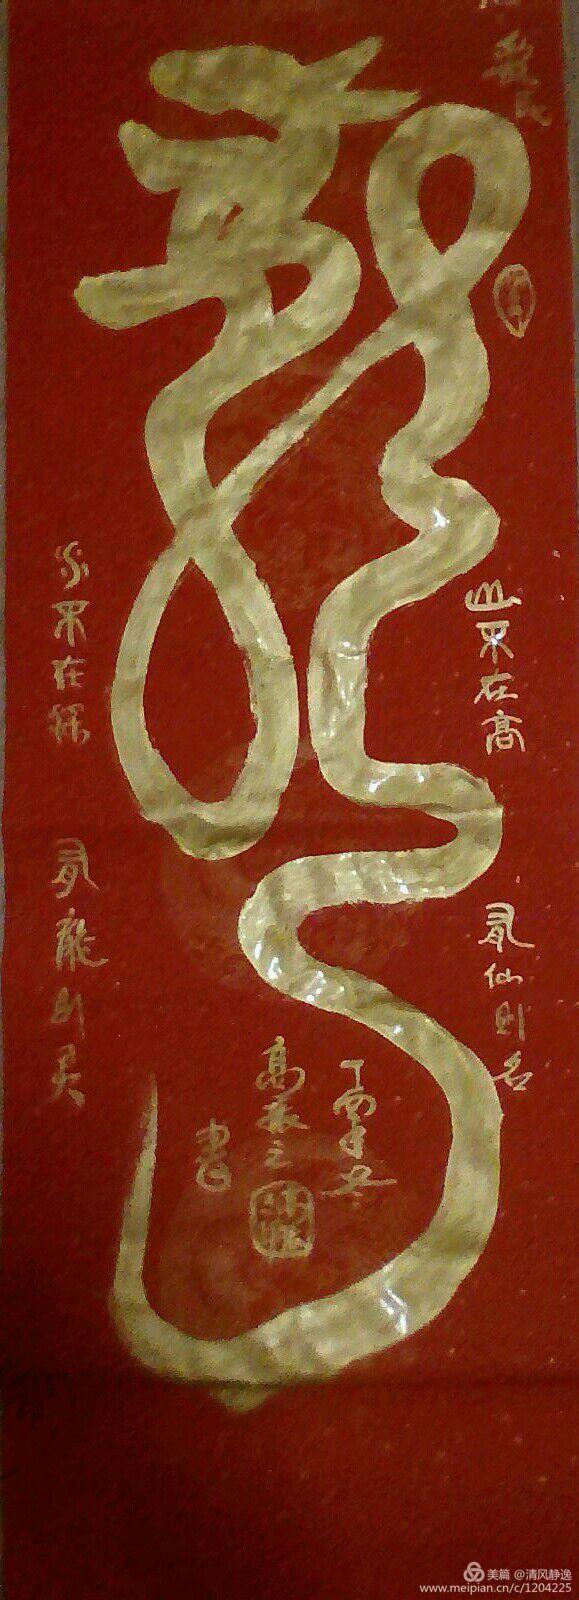 龍
山不在高
有仙则名
水不在深
有龍则灵
丁酉年冬
书
美篇 @清风静逸
www.meipian.cn/c/1204225